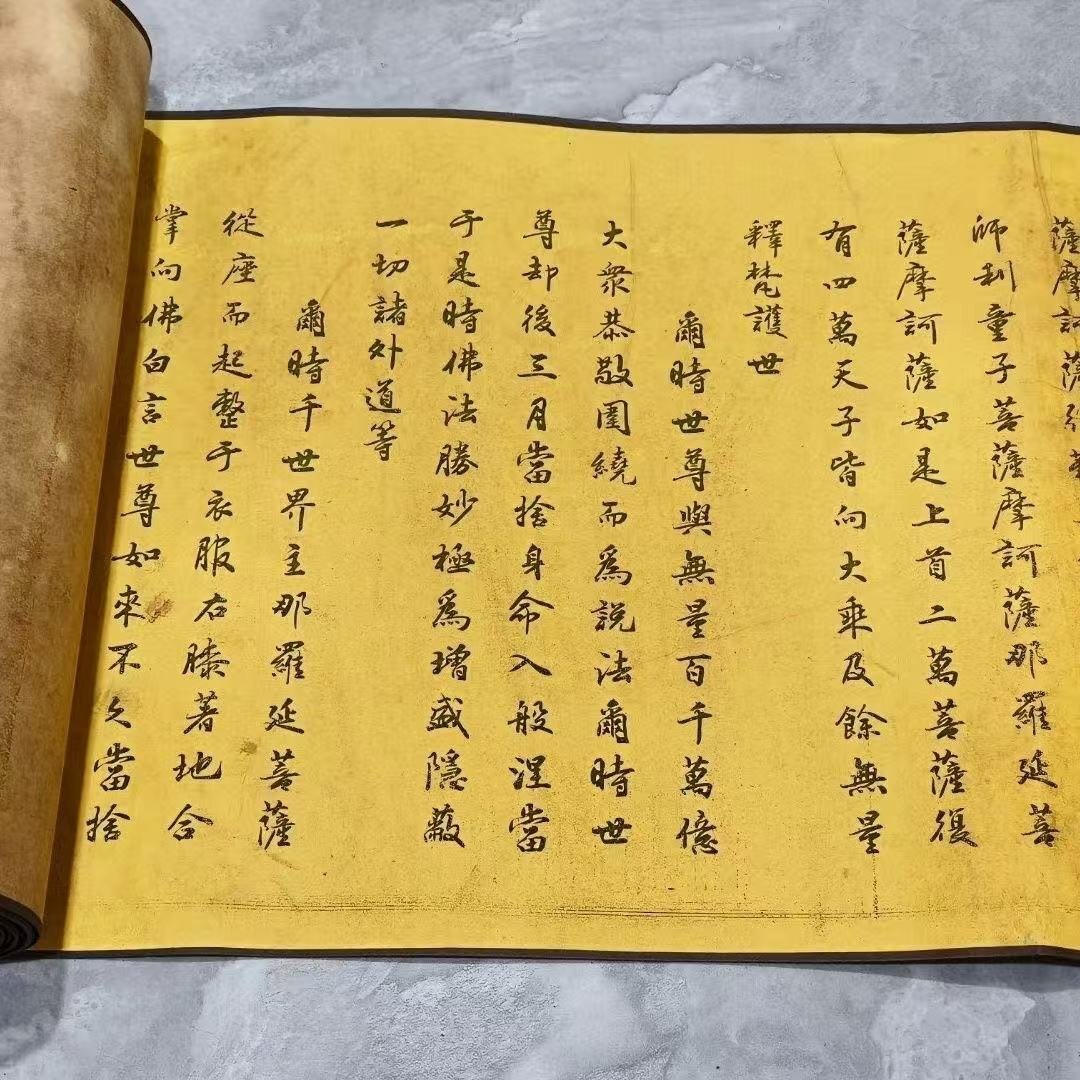 薩摩訶薩彌
師利童子菩薩摩訶薩那羅延菩
薩摩訶薩如是上首二萬菩薩復
有四萬天子皆向大乘及餘無量
釋梵護世
爾時世尊與無量百千萬億
大衆恭敬圍繞而爲說法爾時世
尊却後三月當捨身命入般涅當
于是時佛法勝妙極爲增盛隱蔽
一切諸外道等
爾時千世界主那羅延菩薩
從座而起整于衣服右膝著地合
掌向佛白言世尊如來不久當捨